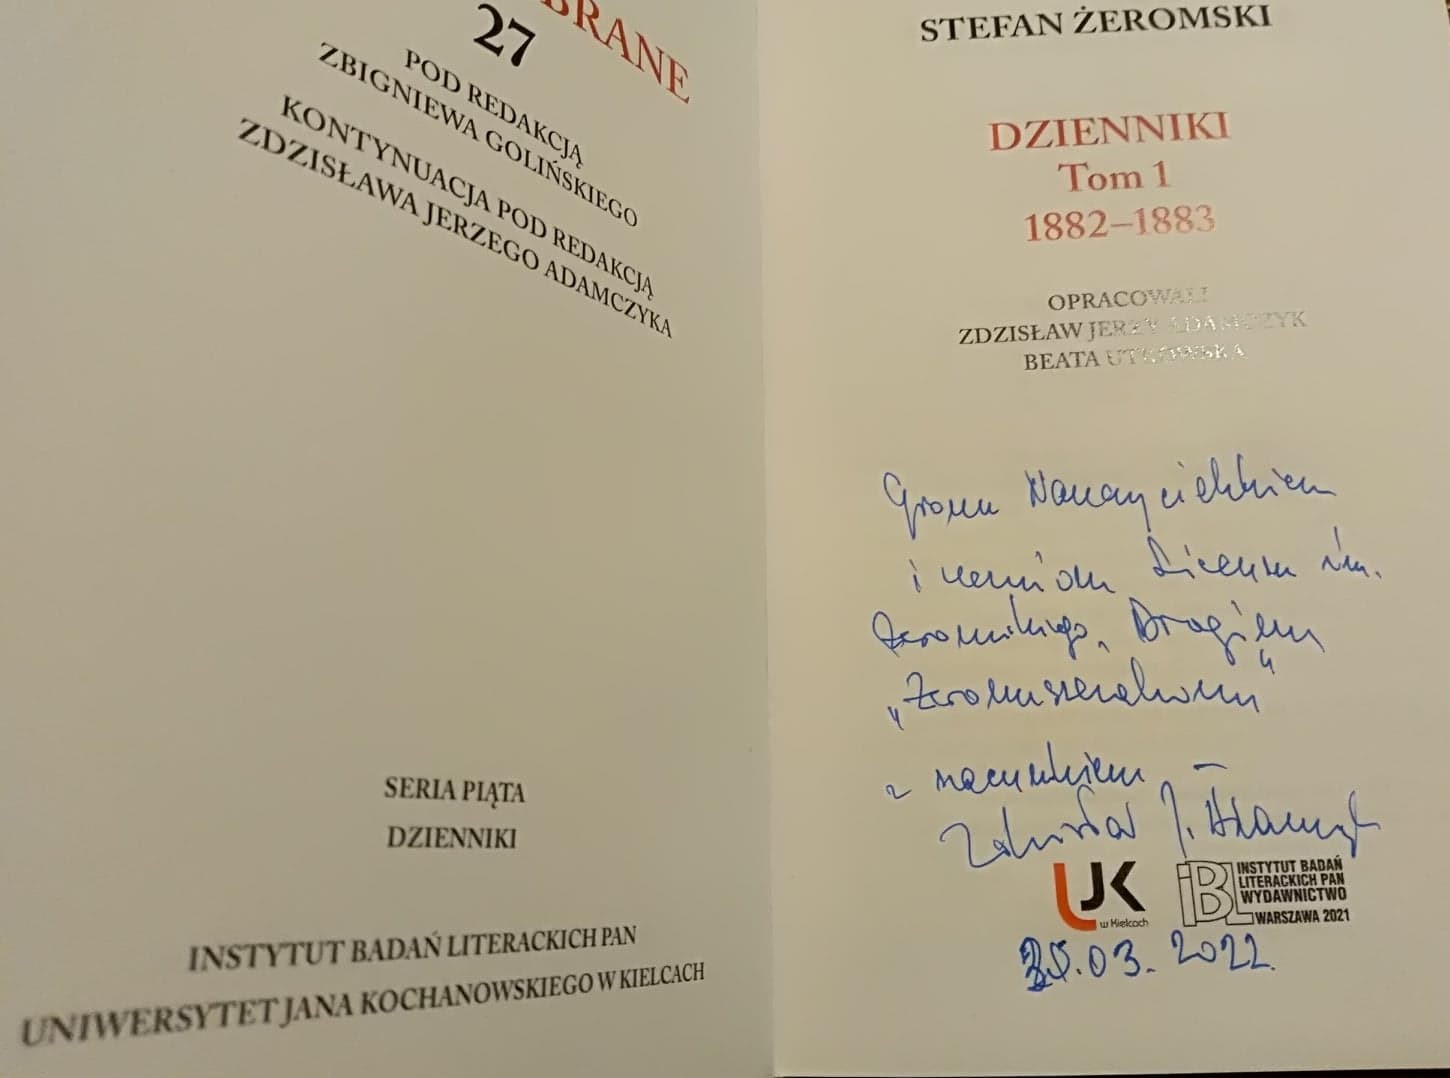 BRANE
27
POD REDAKCJĄ
ZBIGNIEWA GOLIŃSKIEGO
KONTYNUACJA POD REDAKCJĄ
ZDZISŁAWA JERZEGO ADAMCZYKA
SERIA PIĄTA
DZIENNIKI
INSTYTUT BADAŃ LITERACKICH PAN
UNIWERSYTET JANA KOCHANOWSKIEGO W KIELCACH
STEFAN ŻEROMSKI
DZIENNIKI
Tom 1
1882–1883
OPRACOWALI
ZDZISŁAW JERZY ADAMCZYK
BEATA UTKOWSKA
Gronu Nauczycielskiemu
i uczniom Liceum im.
Żeromskiego, Drogim
„Żeromszczakom"
z szacunkiem –
Zdzisław J. Adamczyk
UJK
w Kielcach
IBL
INSTYTUT BADAŃ
LITERACKICH PAN
WYDAWNICTWO
WARSZAWA 2021
.03. 2022.